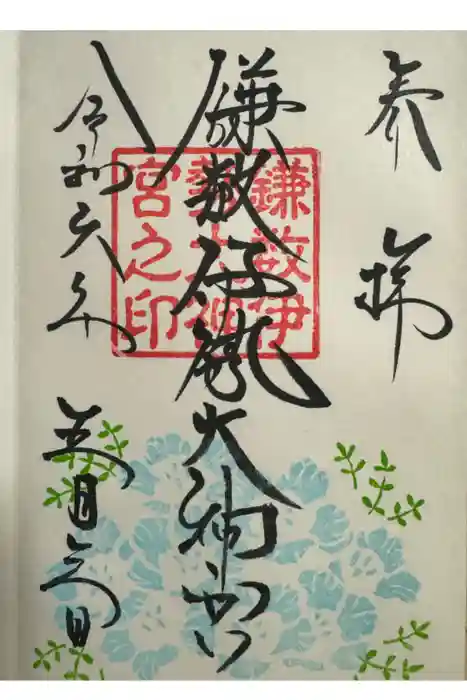 奉拝
鎌数伊勢大神宮
鎌数伊
勢大神
宮之印
令和六年
五月六日